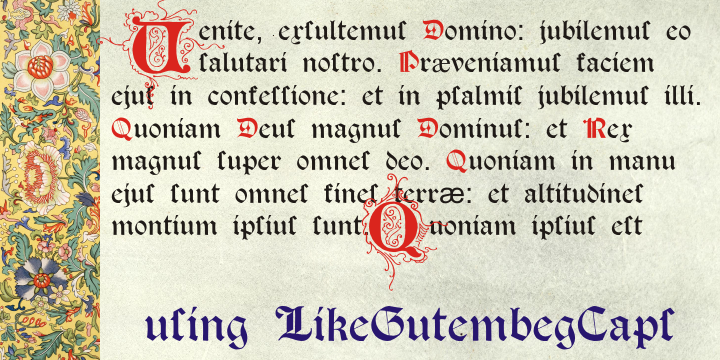 Uenite, exſultemuſ Domino: jubilemuſ eo
ſalutari noſtro. Præveniamuſ faciem
ejuſ in confeſſione: et in pſalmiſ jubilemuſ illi.
Quoniam Deuſ magnuſ Dominuſ: et Rex
magnuſ ſuper omneſ deo. Quoniam in manu
ejuſ ſunt omneſ fineſ terræ: et altitudineſ
montium ipſiuſ ſunt Quoniam ipſiuſ eſt
uſing LikeGutembegCapſ